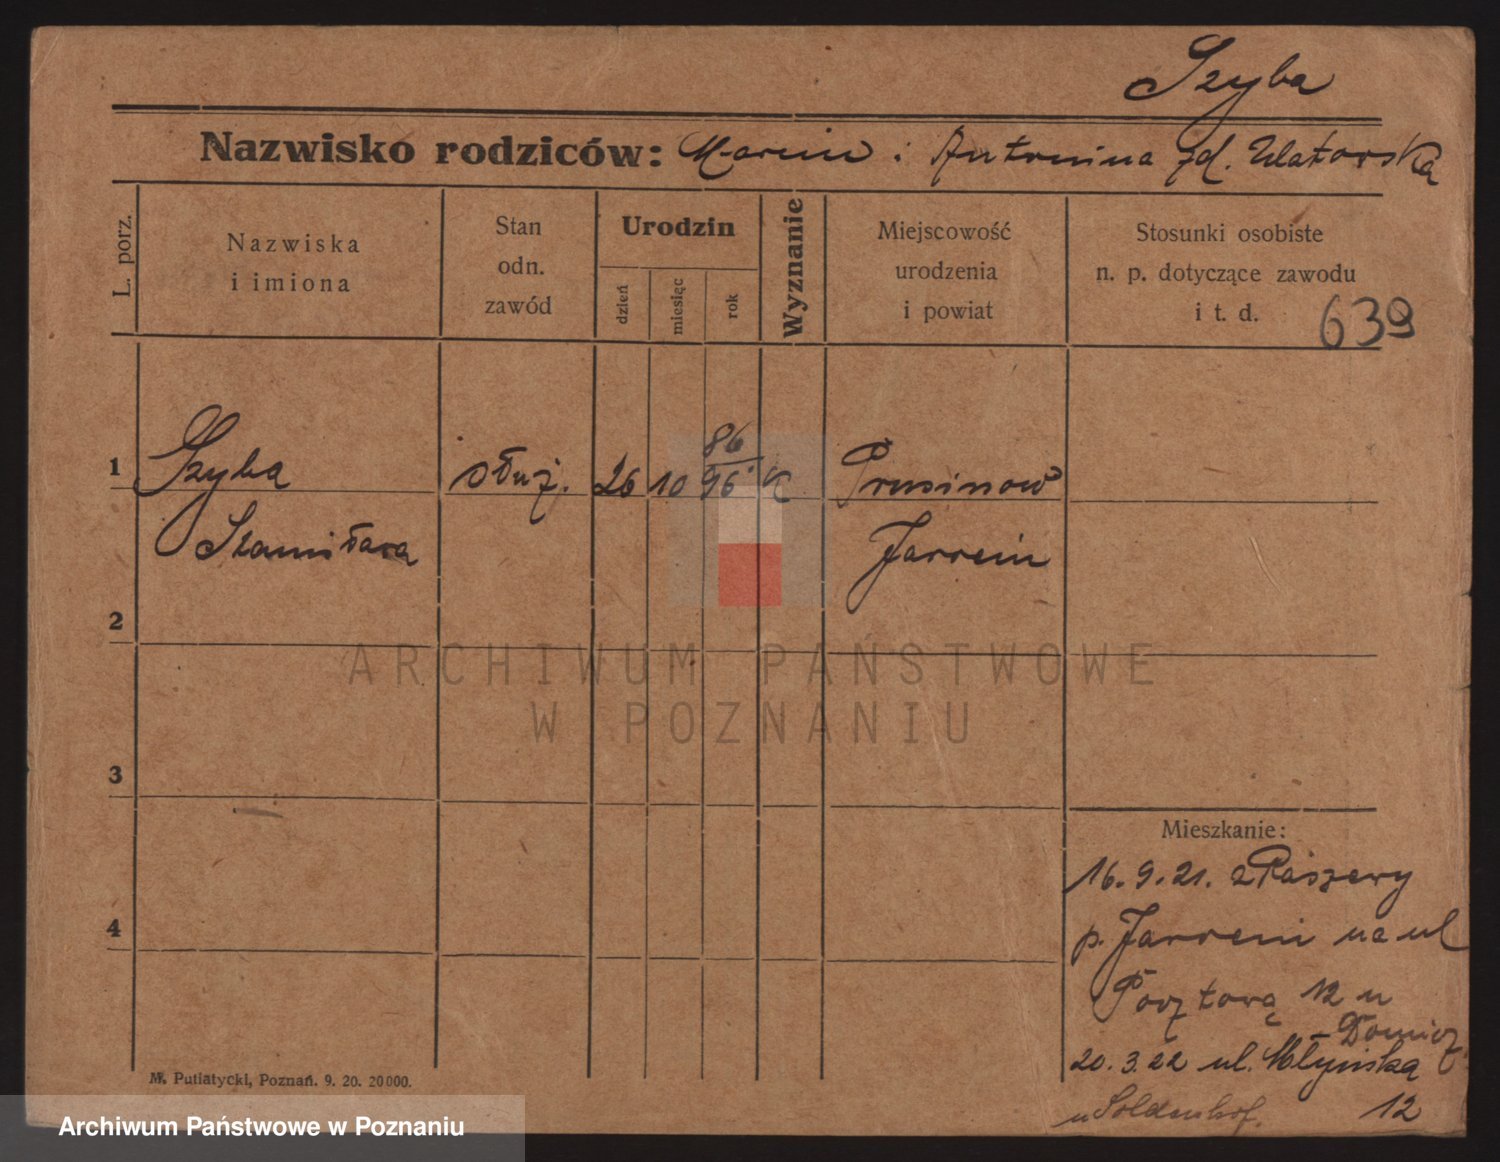 Szyba
Nazwisko rodziców: Marcin i Antonina zd. Watorska
L. porz.
Nazwiska
i imiona
Stan
odn.
zawód
Urodzin
dzień
miesiąc
rok
Wyznanie
Miejscowość
urodzenia
i powiat
Stosunki osobiste
n. p. dotyczące zawodu
i t. d.
639
86
1 Szyba służ. 26 10 96 K Prusinow
Stanisława Jarocin
2
ARCHIWUM PAŃSTWOWE
W POZNANIU
3
Mieszkanie:
16. 9. 21. z Raszewy
4
p. Jarocin na ul
Pocztową 12 u
Domicz.
20. 3. 22 ul. Młyńska
12
u Soldenhof.
M. Putiatycki, Poznań. 9. 20. 20000.
Archiwum Państwowe w Poznaniu